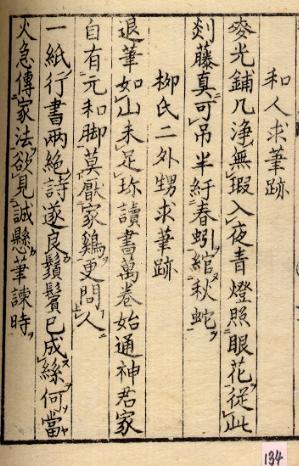 和人求筆跡
麥光鋪几浄無瑕入夜青燈照眼花従此
剡藤真可吊半紆春蚓綰秋蛇
柳氏二外甥求筆跡
退筆如山未足珎讀書萬卷始通神君家
自有元和脚莫厭家鷄更問人
一紙行書兩絶詩遂良鬚鬢已成絲何當
火急傳家法欲見誠懸筆諫時
134